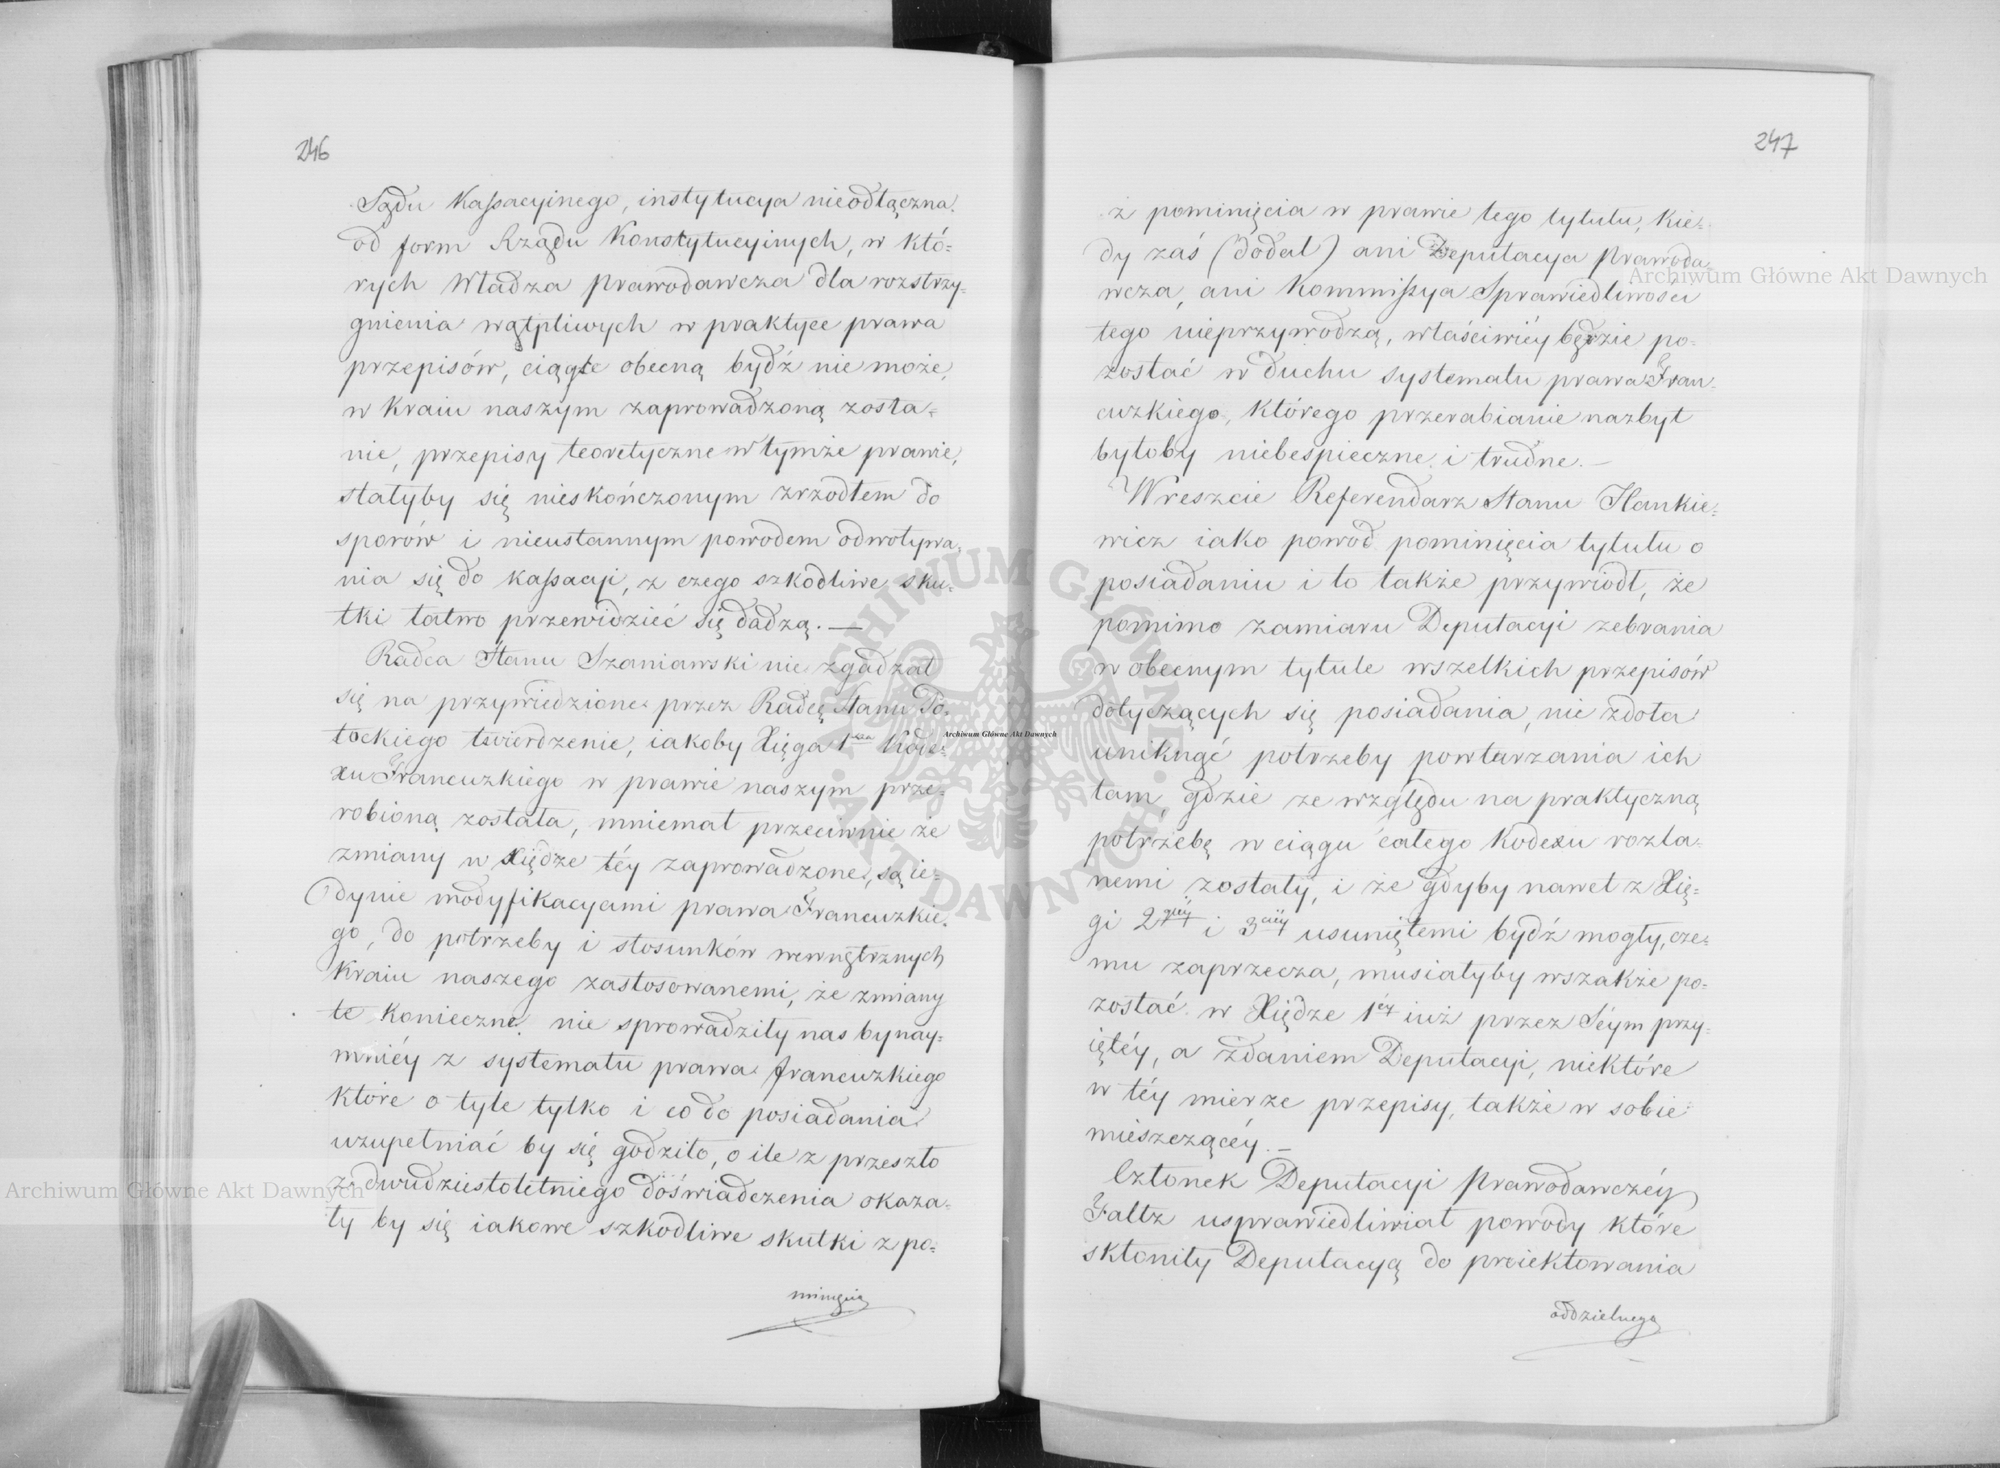 246
Sądu Kassacyinego, instytucya nieodłączna
od form Rządu Konstytucyinych, w któ=
rych Władza Prawodawcza dla rozstrzy=
gnienia wątpliwych w praktyce prawa
przepisów, ciągle obecną bydź nie może,
w Kraiu naszym zaprowadzoną zosta=
nie, przepisy teoretyczne w tymże prawie,
stałyby się nieskończonym zrzodłem do
sporów i nieustannym powodem odwoływa=
nia się do kassacyi, z czego szkodliwe sku=
tki łatwo przewidzieć się dadzą. —
Radca Stanu Szaniawski nie zgadzał
się na przywiedzione przez Radcę Stanu Po=
tockiego twierdzenie, iakoby Xięga 1sza Kode=
xu Francuzkiego w prawie naszym prze=
robioną została, mniemał przeciwnie że
zmiany w Xiędze téy zaprowadzone, są ie=
dynie modyfikacyami prawa Francuzkie=
go, do potrzeby i stosunków wewnętrznych
Kraiu naszego zastosowanemi, że zmiany
te konieczne nie sprowadziły nas bynay=
mniéy z systematu prawa francuzkiego
które o tyle tylko i co do posiadania
uzupełniać by się godziło, o ile z przeszło
z dwudziestoletniego doświadczenia okaza=
ły by się iakowe szkodliwe skutki z po=
minięcia
247
z pominięcia w prawie tego tytułu, kie=
dy zaś (dodał) ani Deputacya Prawoda=
wcza, ani Kommissya Sprawiedliwości
tego nieprzywodzą, właściwiéy będzie po=
zostać w duchu systematu prawa Fran=
cuzkiego, którego przerabianie nazbyt
byłoby niebespieczne i trudne. —
Wreszcie Referendarz Stanu Hankie=
wicz iako powód pominięcia tytułu o
posiadaniu i to także przywiódł, że
pomimo zamiaru Deputacyi zebrania
w obecnym tytule wszelkich przepisów
dotyczących się posiadania, nie zdoła
uniknąć potrzeby powtarzania ich
tam, gdzie ze względu na praktyczną
potrzebę w ciągu całego Kodexu rozla=
nemi zostały, i że gdyby nawet z Xię=
gi 2giéy i 3ciéy usuniętemi bydź mogły, cze=
mu zaprzecza, musiałyby wszakże po=
zostać w Xiędze 1éy iuż przez Séym przy=
iętéy, a zdaniem Deputacyi, niektóre
w téy mierze przepisy, także w sobie
mieszczącéy. —
Członek Deputacyi Prawodawczéy
Faltz usprawiedliwiał powody które
skłoniły Deputacyą do proiektowania
oddzielnego
Archiwum Główne Akt Dawnych
Archiwum Główne Akt Dawnych
Archiwum Główne Akt Dawnych
ARCHIWUM GŁÓWNE AKT DAWNYCH